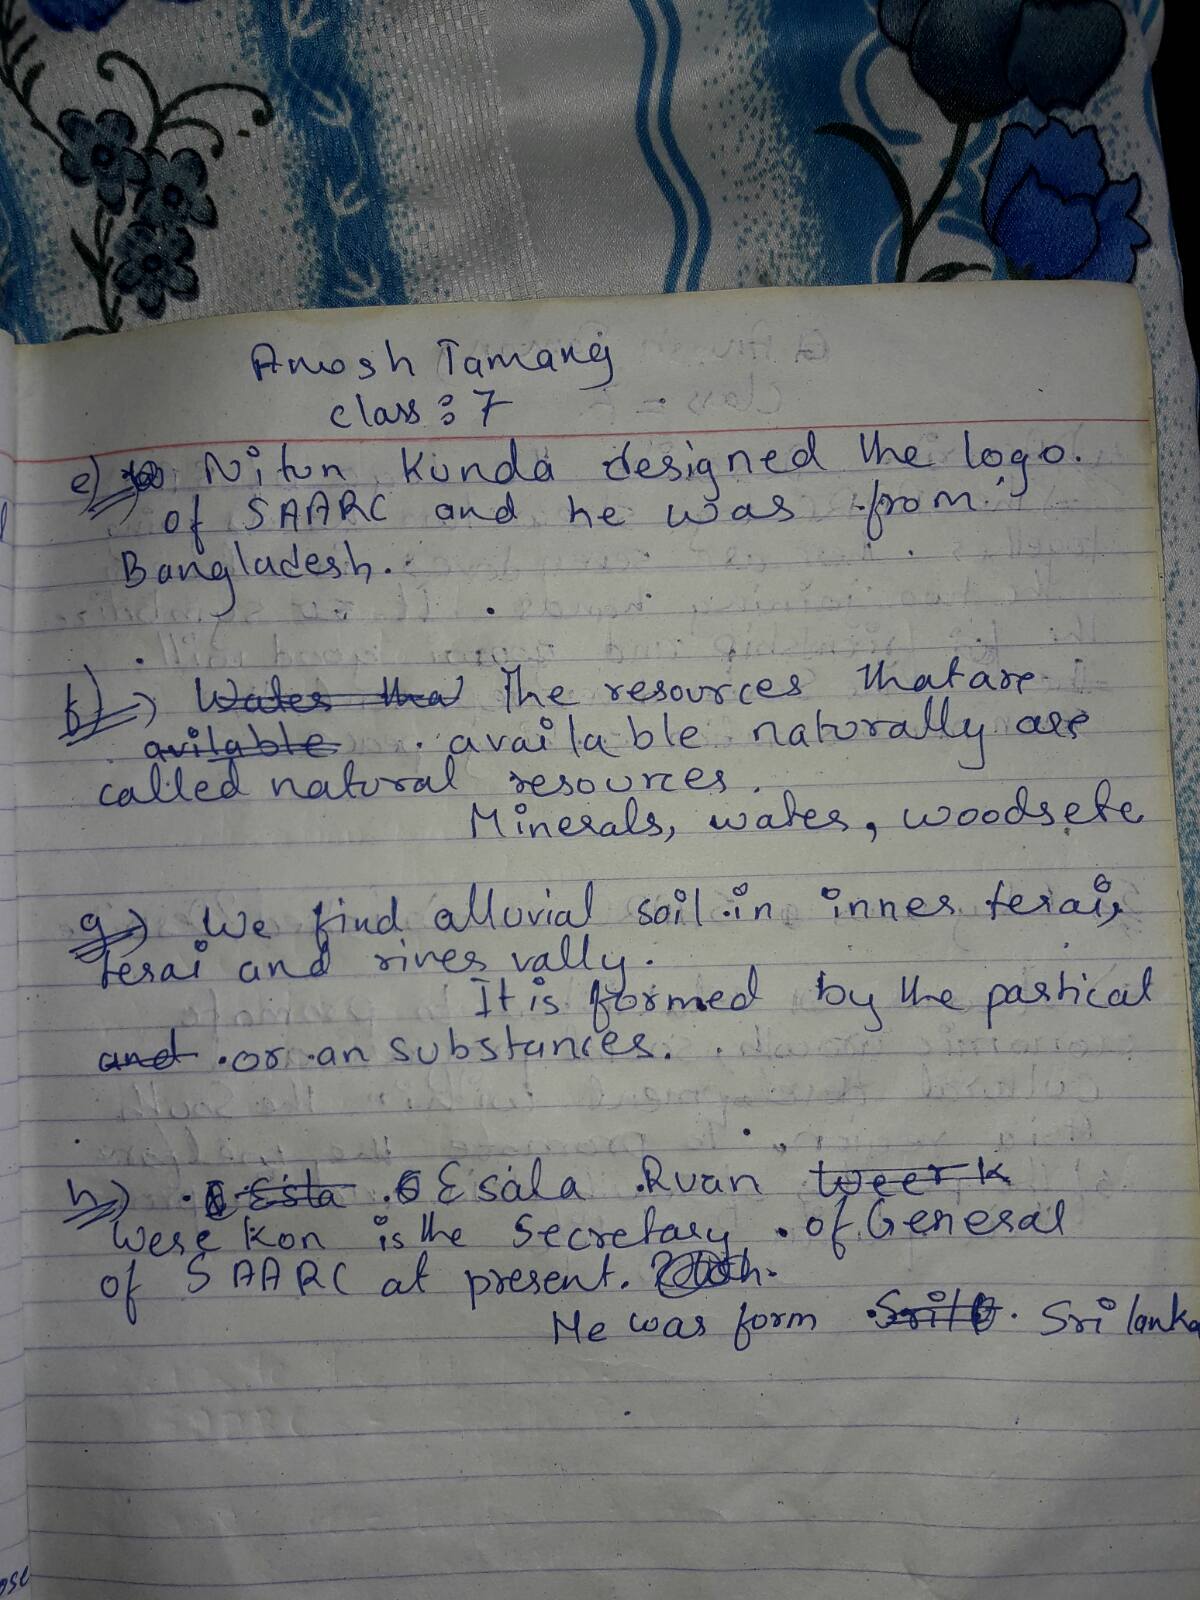 Anosh Tamang
class : 7
e) Nitun Kunda designed the logo.
of SAARC and he was from
Bangladesh.
f) Water the The resources that are
avilable available naturally are
called natural resources.
Minerals, water, woods etc
g) We find alluvial soil in inner terai,
terai and river vally.
It is formed by the partical
and or an substances.
h) Esta Esala Ruan weerk
were kon is the Secretary of General
of SAARC at present.
He was form Sril Sri lanka